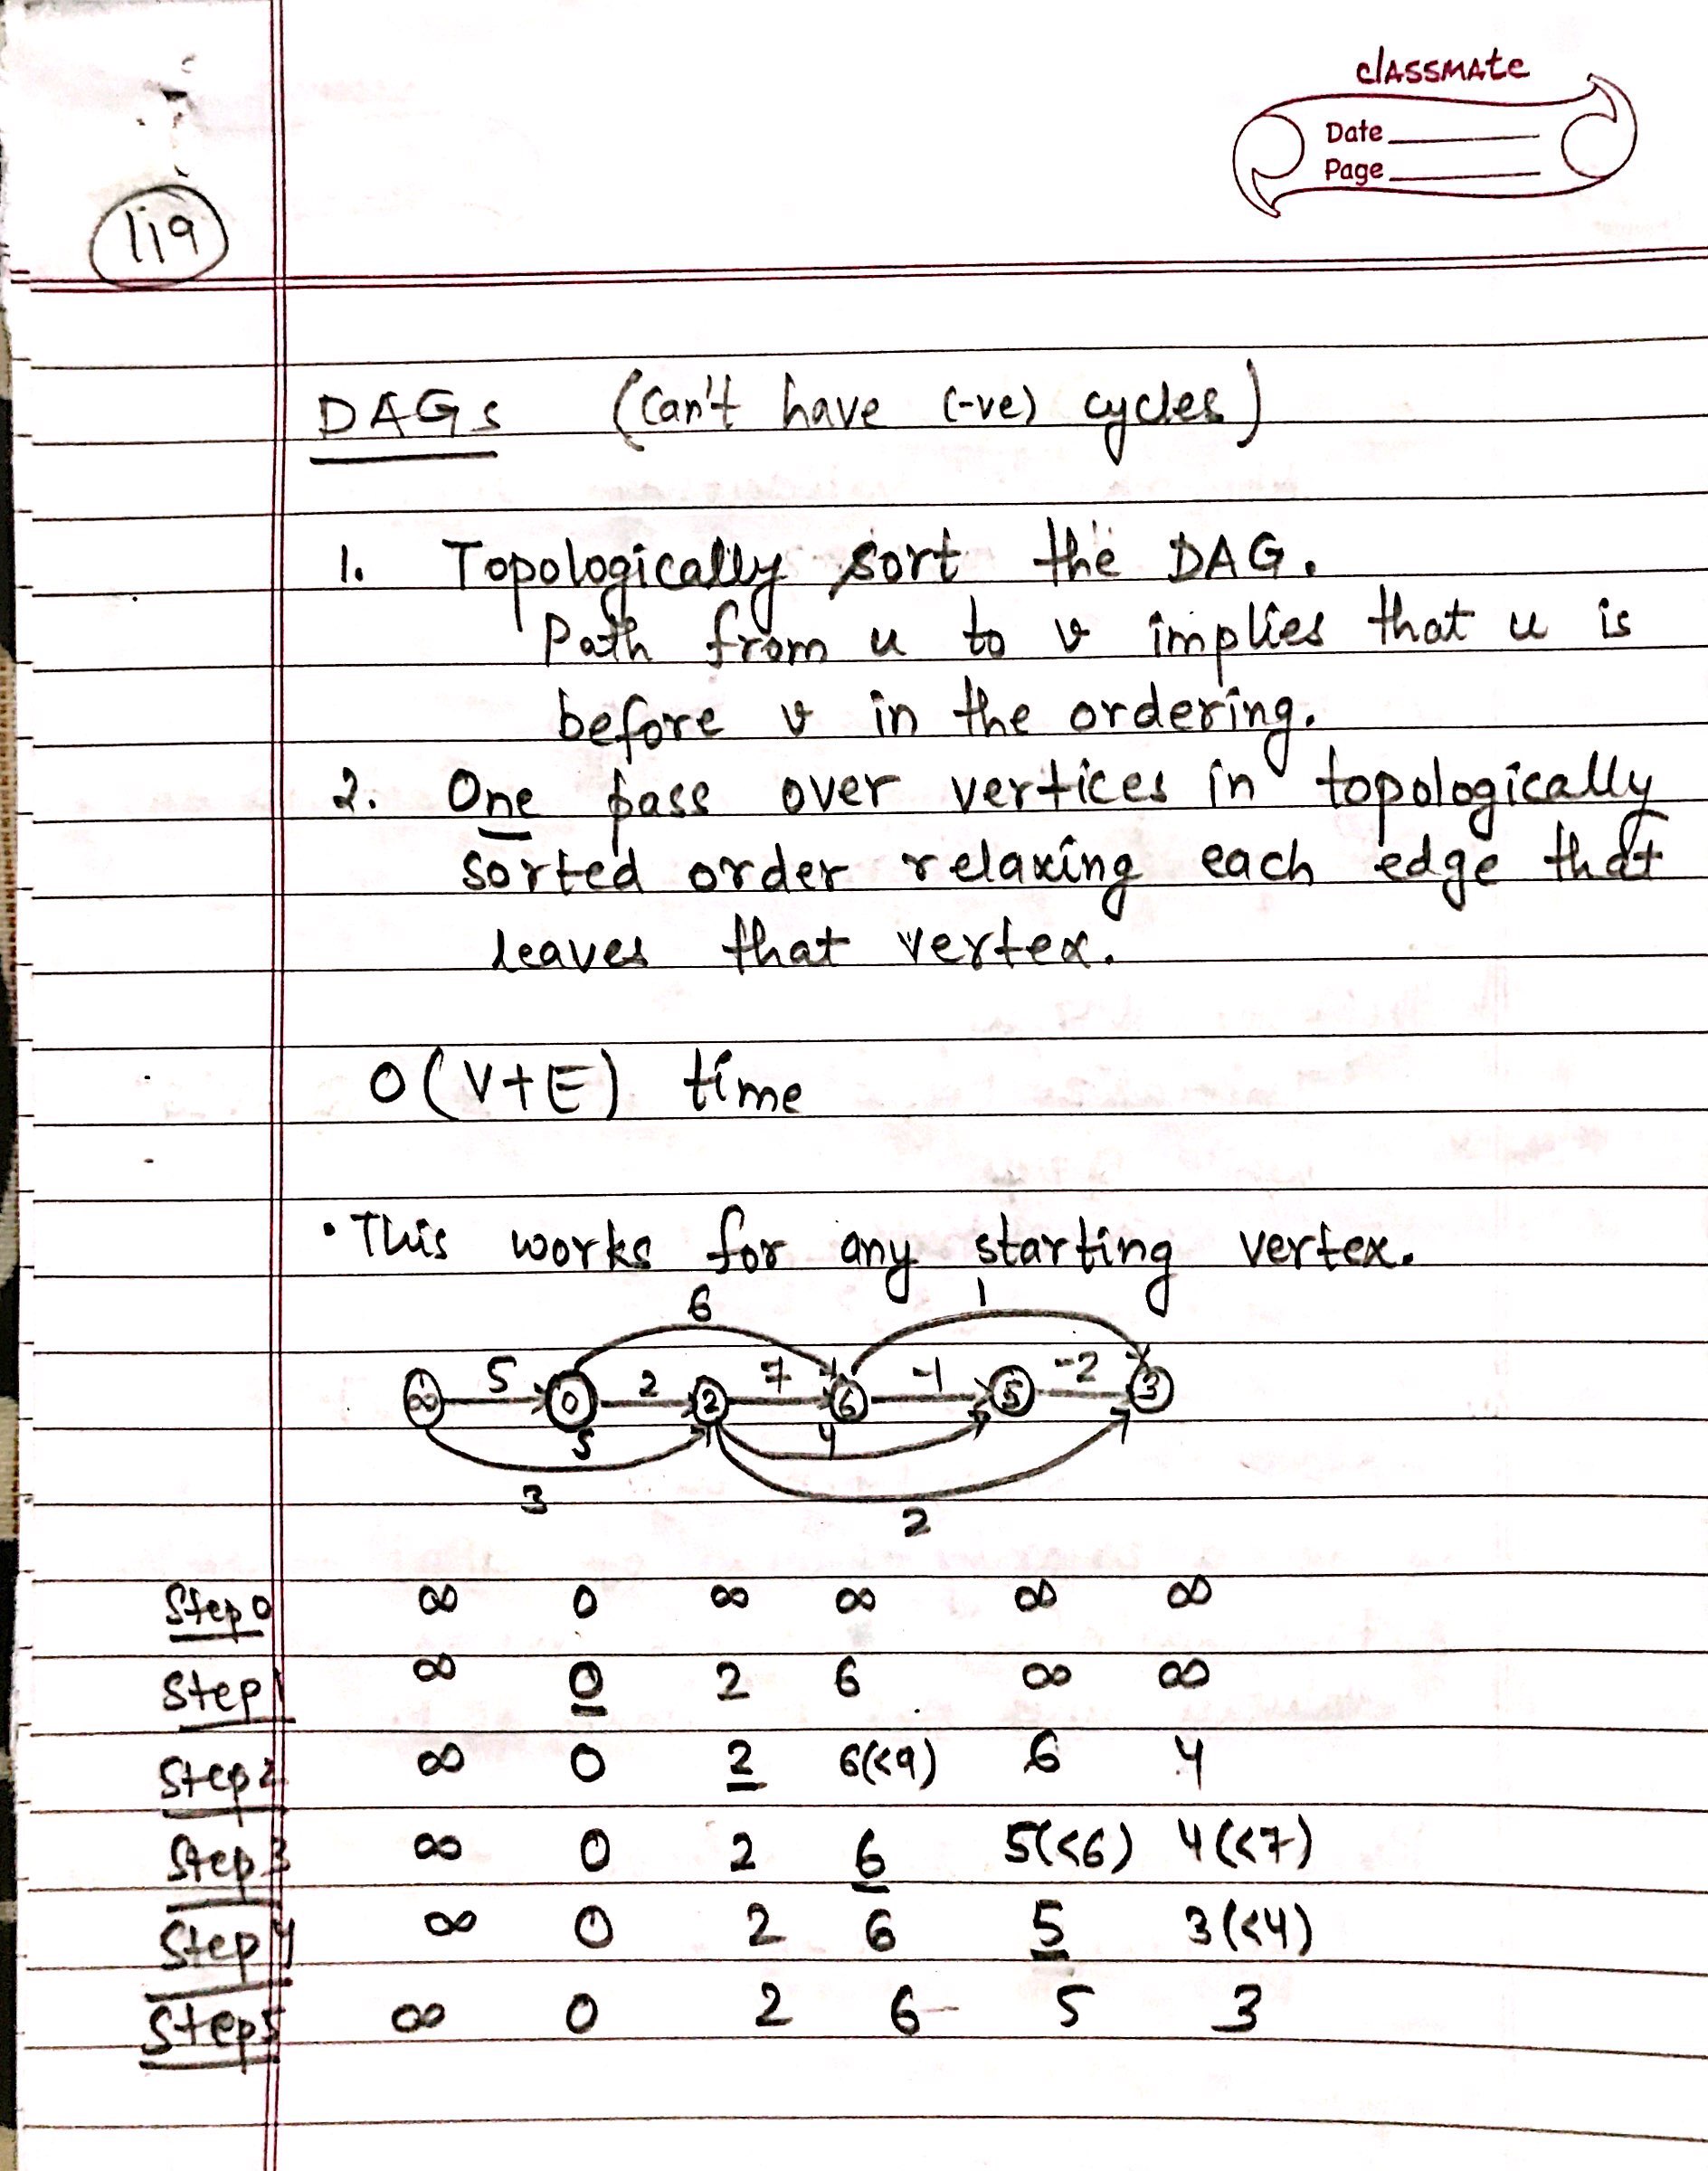 classmate
Date
Page
119
DAGs (Can't have (-ve) cycles)
1. Topologically sort the DAG.
Path from u to v implies that u is
before v in the ordering.
2. One pass over vertices in topologically
sorted order relaxing each edge that
leaves that vertex.
O(V+E) time
• This works for any starting vertex.
6 1
∞ 5 0 2 2 7 6 -1 5 -2 3
s 4
3 2
Step 0 ∞ 0 ∞ ∞ ∞ ∞
Step 1 ∞ 0 2 6 ∞ ∞
Step 2 ∞ 0 2 6(<9) 6 4
Step 3 ∞ 0 2 6 5(<6) 4(<7)
Step 4 ∞ 0 2 6 5 3(<4)
Step 5 ∞ 0 2 6 5 3